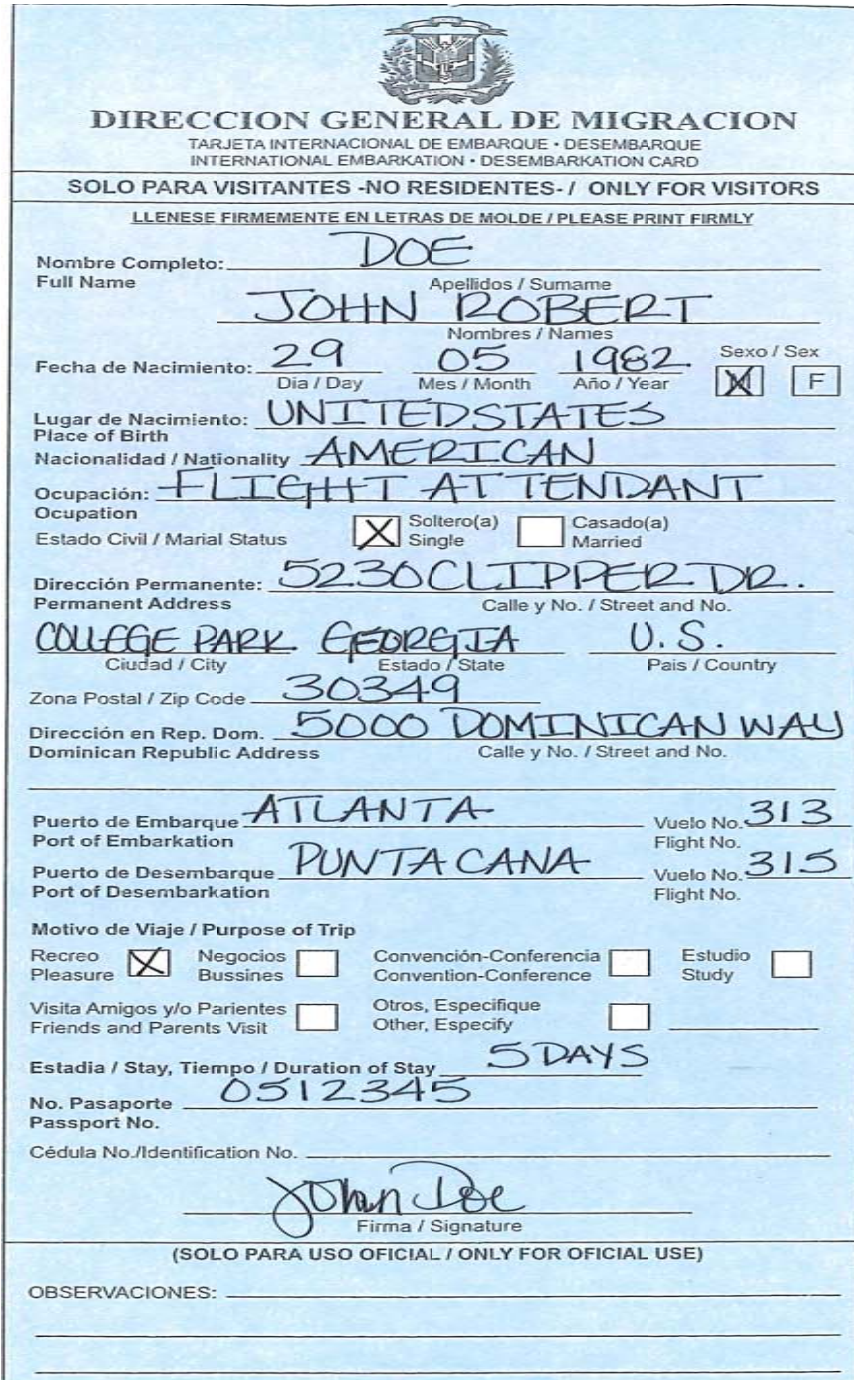 DIRECCION GENERAL DE MIGRACION
TARJETA INTERNACIONAL DE EMBARQUE • DESEMBARQUE
INTERNATIONAL EMBARKATION • DESEMBARKATION CARD
SOLO PARA VISITANTES -NO RESIDENTES- / ONLY FOR VISITORS
LLENESE FIRMEMENTE EN LETRAS DE MOLDE / PLEASE PRINT FIRMLY
Nombre Completo: DOE
Full Name Apellidos / Surname
JOHN ROBERT
Nombres / Names
Fecha de Nacimiento: 29 05 1982 Sexo / Sex
Dia / Day Mes / Month Año / Year M F
Lugar de Nacimiento: UNITED STATES
Place of Birth
Nacionalidad / Nationality AMERICAN
Ocupación: FLIGHT ATTENDANT
Ocupation
Estado Civil / Marial Status X Soltero(a) Single Casado(a) Married
Dirección Permanente: 5230 CLIPPER DR.
Permanent Address Calle y No. / Street and No.
COLLEGE PARK GEORGIA U.S.
Ciudad / City Estado / State Pais / Country
Zona Postal / Zip Code 30349
Dirección en Rep. Dom. 5000 DOMINICAN WAY
Dominican Republic Address Calle y No. / Street and No.
Puerto de Embarque ATLANTA Vuelo No. 313
Port of Embarkation Flight No.
Puerto de Desembarque PUNTA CANA Vuelo No. 315
Port of Desembarkation Flight No.
Motivo de Viaje / Purpose of Trip
Recreo Negocios Convención-Conferencia Estudio
Pleasure X Bussines Convention-Conference Study
Visita Amigos y/o Parientes Otros, Especifique
Friends and Parents Visit Other, Especify
Estadia / Stay, Tiempo / Duration of Stay 5 DAYS
No. Pasaporte 0512345
Passport No.
Cédula No./Identification No.
John Doe
Firma / Signature
(SOLO PARA USO OFICIAL / ONLY FOR OFICIAL USE)
OBSERVACIONES: